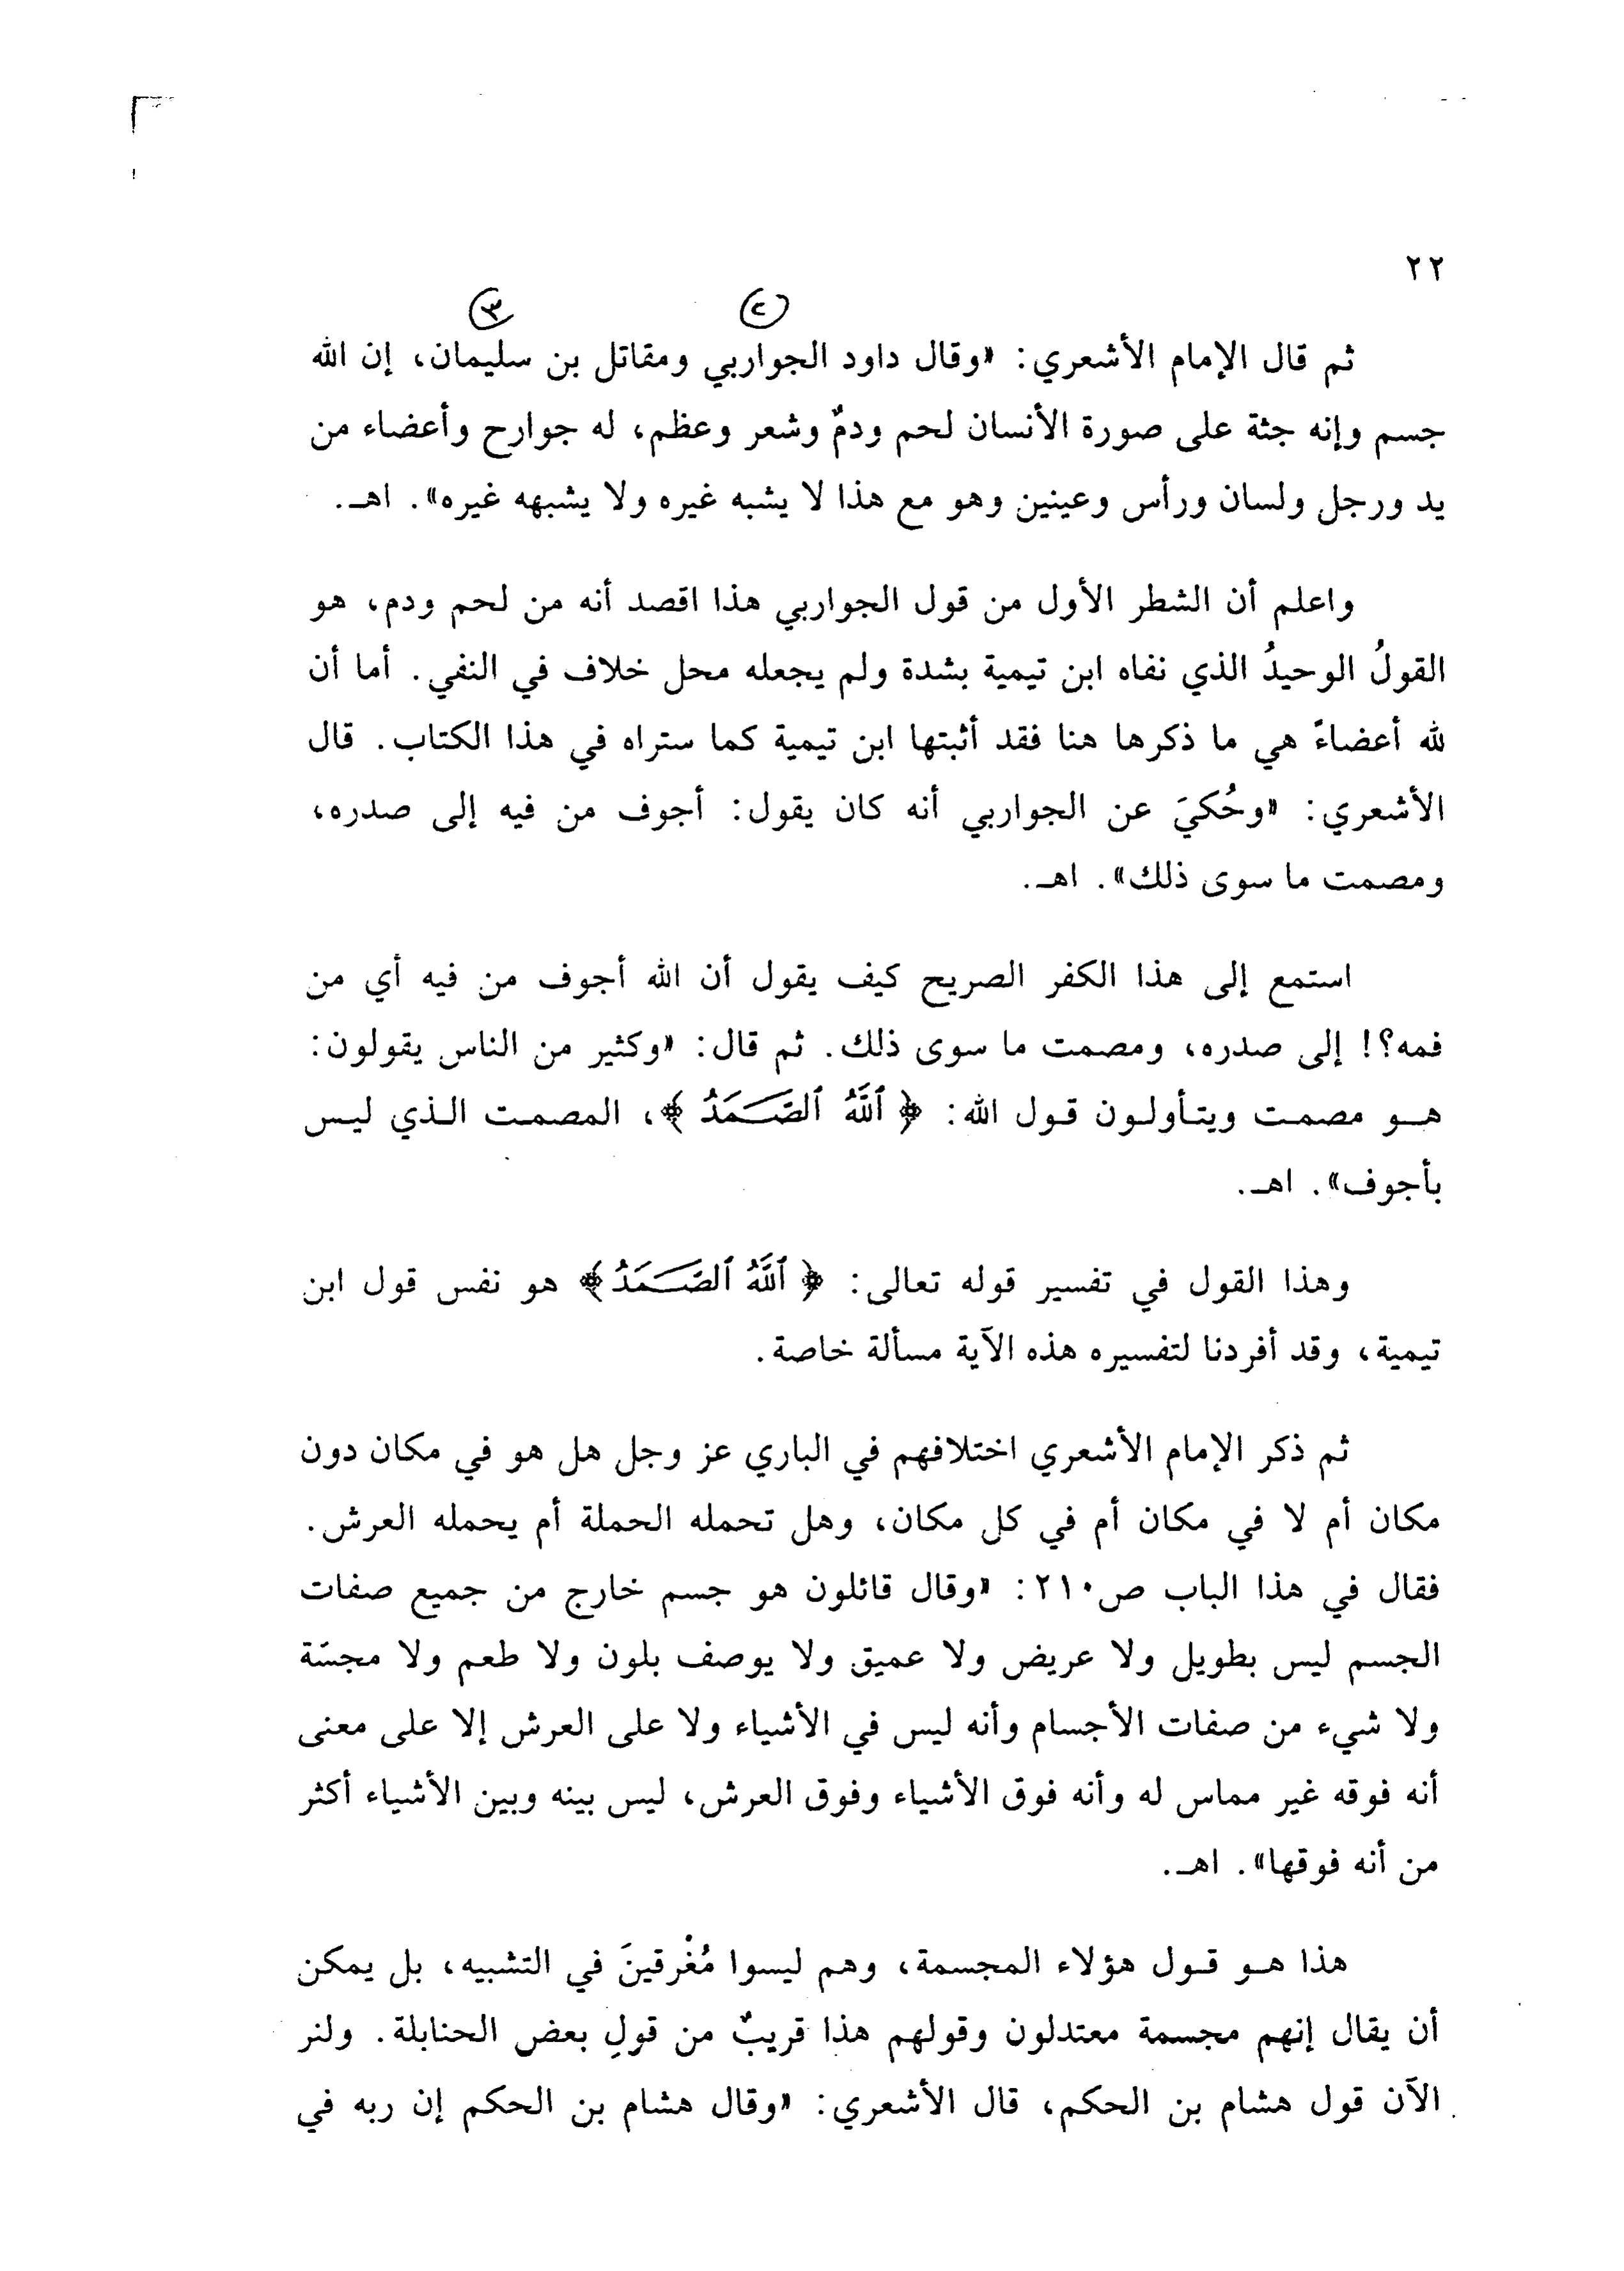 ٢٢
٢ ٣
ثم قال الإمام الأشعري: «وقال داود الجواربي ومقاتل بن سليمان، إن الله
جسم وإنه جثة على صورة الأنسان لحم ودمٌ وشعر وعظم، له جوارح وأعضاء من
يد ورجل ولسان ورأس وعينين وهو مع هذا لا يشبه غيره ولا يشبهه غيره». اهـ.
واعلم أن الشطر الأول من قول الجواربي هذا اقصد أنه من لحم ودم، هو
القولُ الوحيدُ الذي نفاه ابن تيمية بشدة ولم يجعله محل خلاف في النفي. أما أن
لله أعضاءً هي ما ذكرها هنا فقد أثبتها ابن تيمية كما ستراه في هذا الكتاب. قال
الأشعري: «وحُكيَ عن الجواربي أنه كان يقول: أجوف من فيه إلى صدره،
ومصمت ما سوى ذلك». اهـ.
استمع إلى هذا الكفر الصريح كيف يقول أن الله أجوف من فيه أي من
فمه؟! إلى صدره، ومصمت ما سوى ذلك. ثم قال: «وكثير من الناس يقولون:
هـو مصمت ويتأولون قول الله: ﴿ ٱللَّهُ ٱلصَّمَدُ ﴾، المصمت الذي ليس
بأجوف». اهـ.
وهذا القول في تفسير قوله تعالى: ﴿ ٱللَّهُ ٱلصَّمَدُ ﴾ هو نفس قول ابن
تيمية، وقد أفردنا لتفسيره هذه الآية مسألة خاصة.
ثم ذكر الإمام الأشعري اختلافهم في الباري عز وجل هل هو في مكان دون
مكان أم لا في مكان أم في كل مكان، وهل تحمله الحملة أم يحمله العرش.
فقال في هذا الباب ص٢١٠: «وقال قائلون هو جسم خارج من جميع صفات
الجسم ليس بطويل ولا عريض ولا عميق ولا يوصف بلون ولا طعم ولا مجسّة
ولا شيء من صفات الأجسام وأنه ليس في الأشياء ولا على العرش إلا على معنى
أنه فوقه غير مماس له وأنه فوق الأشياء وفوق العرش، ليس بينه وبين الأشياء أكثر
من أنه فوقها». اهـ.
هذا هـو قـول هؤلاء المجسمة، وهم ليسوا مُغْرقينَ في التشبيه، بل يمكن
أن يقال إنهم مجسمة معتدلون وقولهم هذا قريبٌ من قولِ بعض الحنابلة. ولنر
الآن قول هشام بن الحكم، قال الأشعري: «وقال هشام بن الحكم إن ربه في